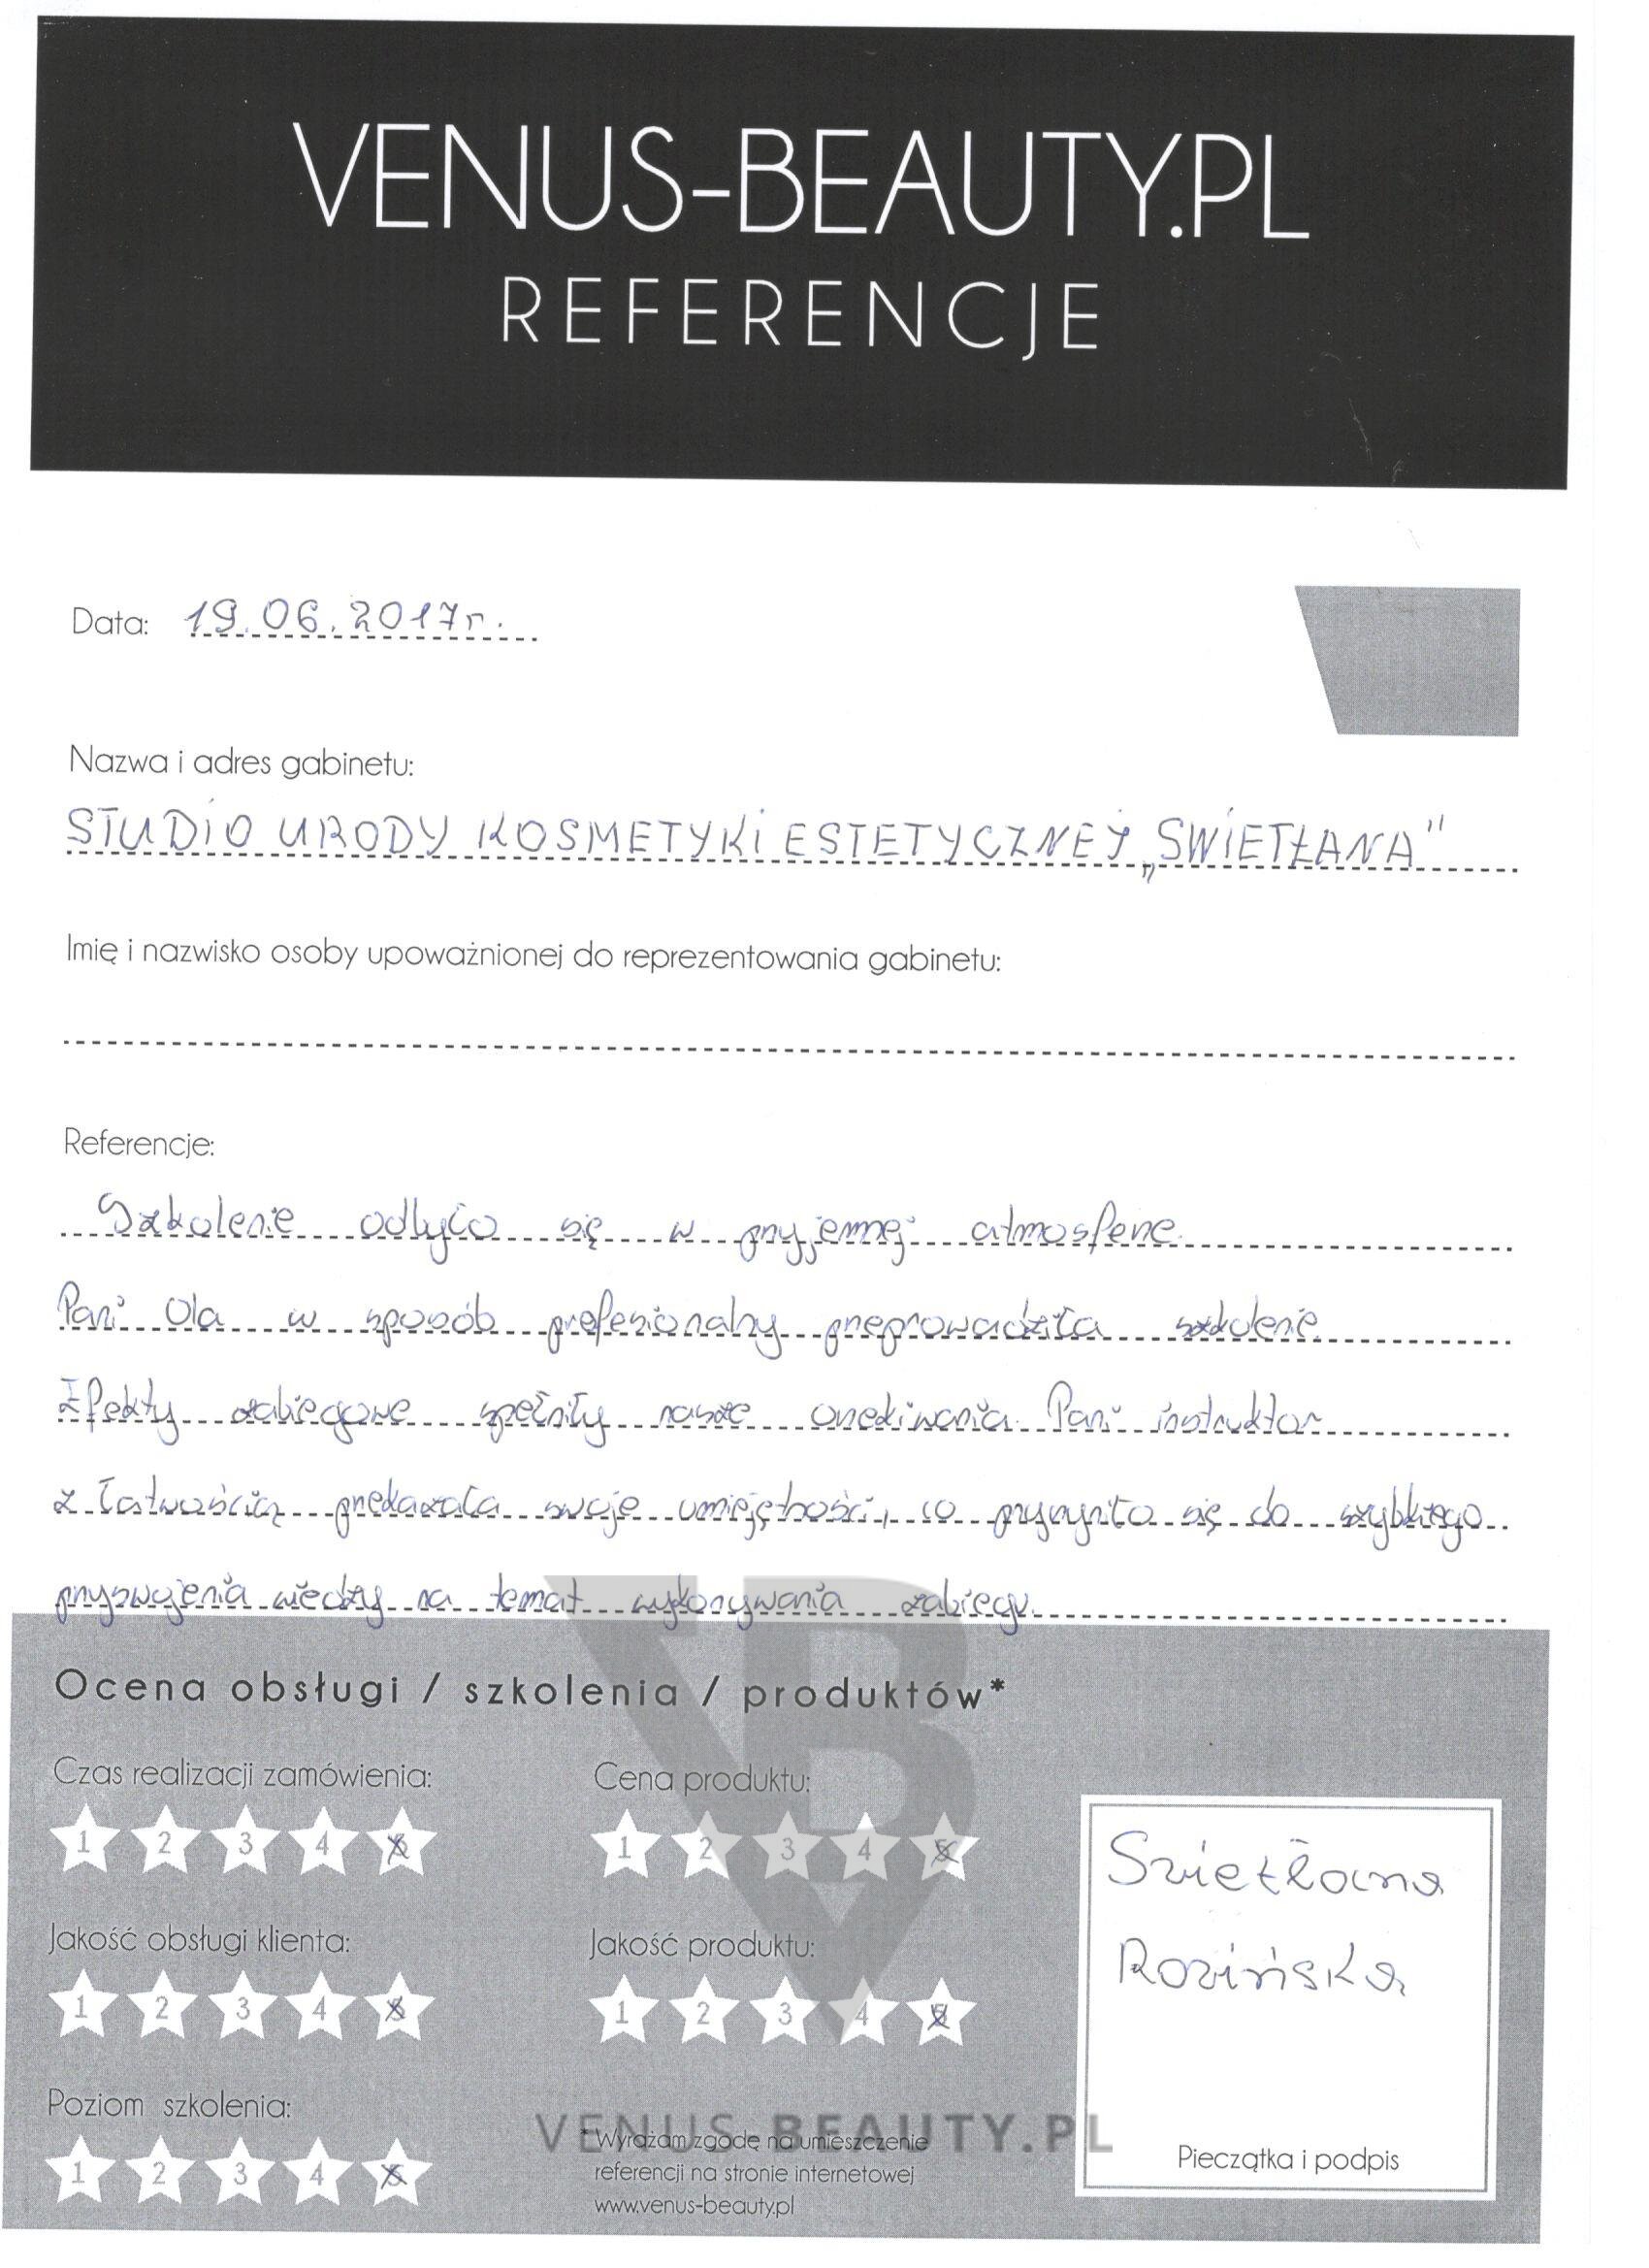 VENUS-BEAUTY.PL
REFERENCJE
Data: 19.06.2017r.
Nazwa i adres gabinetu:
STUDIO URODY KOSMETYKI ESTETYCZNEJ „SWIETŁANA"
Imię i nazwisko osoby upoważnionej do reprezentowania gabinetu:
Referencje:
Szkolenie odbyło się w przyjemnej atmosferze.
Pani Ola w sposób profesionalny przeprowadziła szkolenie.
Efekty zabiegowe spełniły nasze oczekiwania. Pani instruktor
z łatwością przekazała swoje umiejętności, co przyczyniło się do szybkiego
przyswojenia wiedzy na temat wykonywania zabiegu.
Ocena obsługi / szkolenia / produktów*
Czas realizacji zamówienia: Cena produktu:
1 2 3 4 5 1 2 3 4 5
Swietłana
Jakość obsługi klienta: Jakość produktu:
Rozińska
1 2 3 4 5 1 2 3 4 5
Poziom szkolenia:
VENUS-BEAUTY.PL
* Wyrażam zgodę na umieszczenie
referencji na stronie internetowej
www.venus-beauty.pl
1 2 3 4 5
Pieczątka i podpis